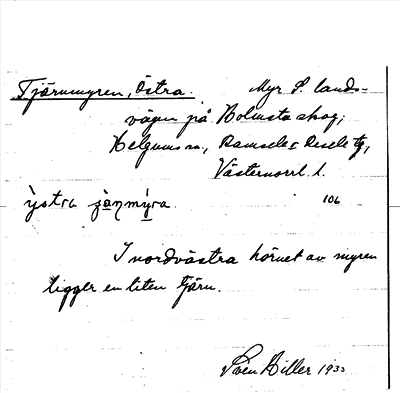 Tjärnmyren, Östra. Myr S. lands-
vägen på Holmsta skog,
Helgums sn, Ramsele o Resele tg,
Västernorrl. l.
ỳstra jàņmýra. 106
I nordvästra hörnet av myren
ligger en liten tjärn.
Sven Hiller 1933